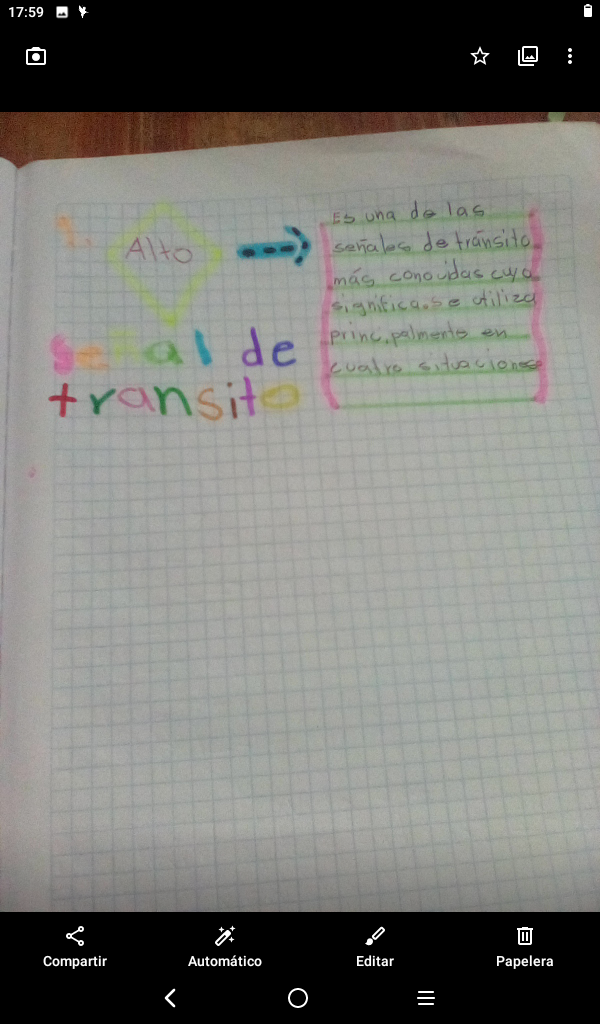 17:59
Alto
señal de
transito
Es una de las
señales de tránsito
más conocidas cuya
significa.se utiliza
principalmente en
cuatro situaciones
Compartir
Automático
Editar
Papelera